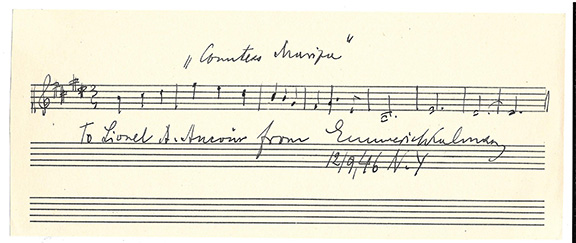 „Countess Mariza"
To Lionel A. from Emmerich Kalman
12/9/46 N.Y